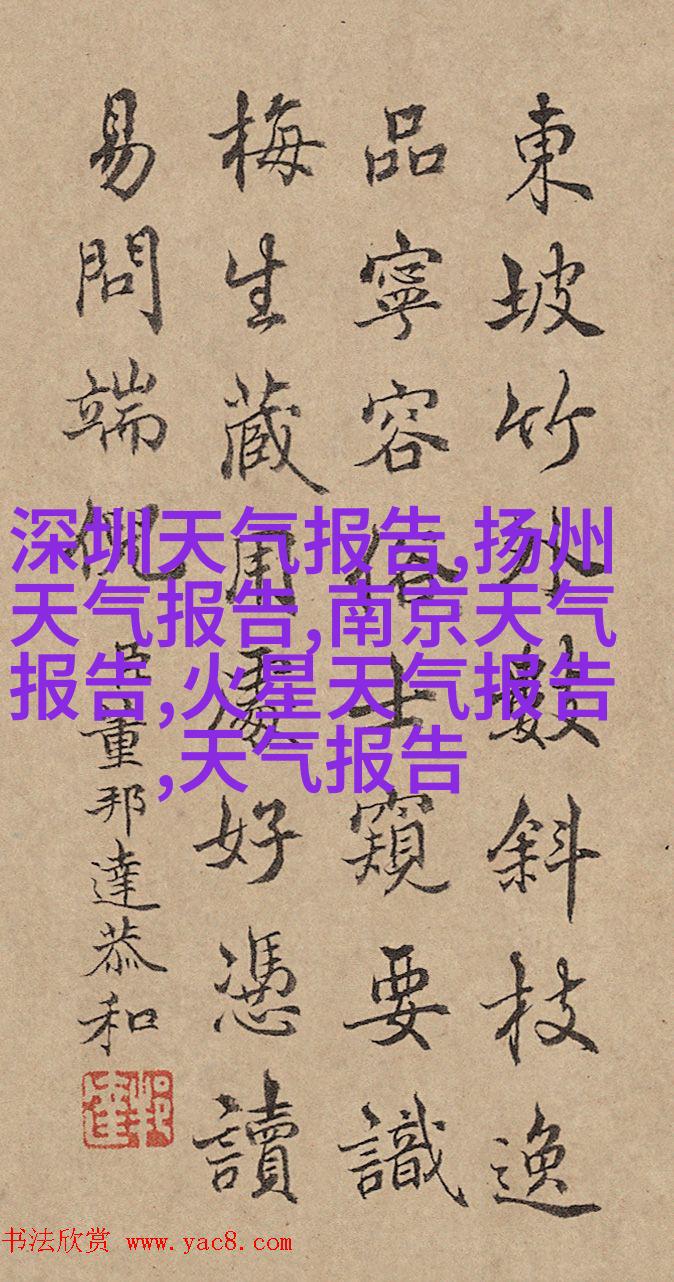 東坡竹外數斜枝逸
品寧容俗士窺要識
梅生藏用處好憑讀
易問端倪
臣董邦達恭和
邦達
深圳天气报告,扬州
天气报告,南京天气
报告,火星天气报告
,天气报告
书法欣赏 www.yac8.com